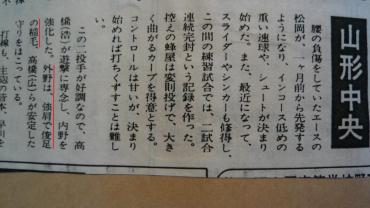 山形中央
腰の負傷をしていたエースの
松岡が、一ヶ月前から先発する
ようになり、インコース低めの
重い速球や、シュートが決まり
始めた。また、最近になって、
スライダーやシンカーも修得し、
この間の練習試合では、二試合
連続完封という記録を作った。
控えの蜂屋は変則投げで、大き
く曲がるカーブを得意とする。
コントロールは甘いが、決まり
始めれば打ちくずすことは難し
この二投手が好調なので、高
橋(浩)が遊撃に専念し、内野を
強化した。外野は、強肩で俊足
の稲毛、高橋(広)らが安定した
守りをはこっている。
打線も、主砲の皆木、早川を